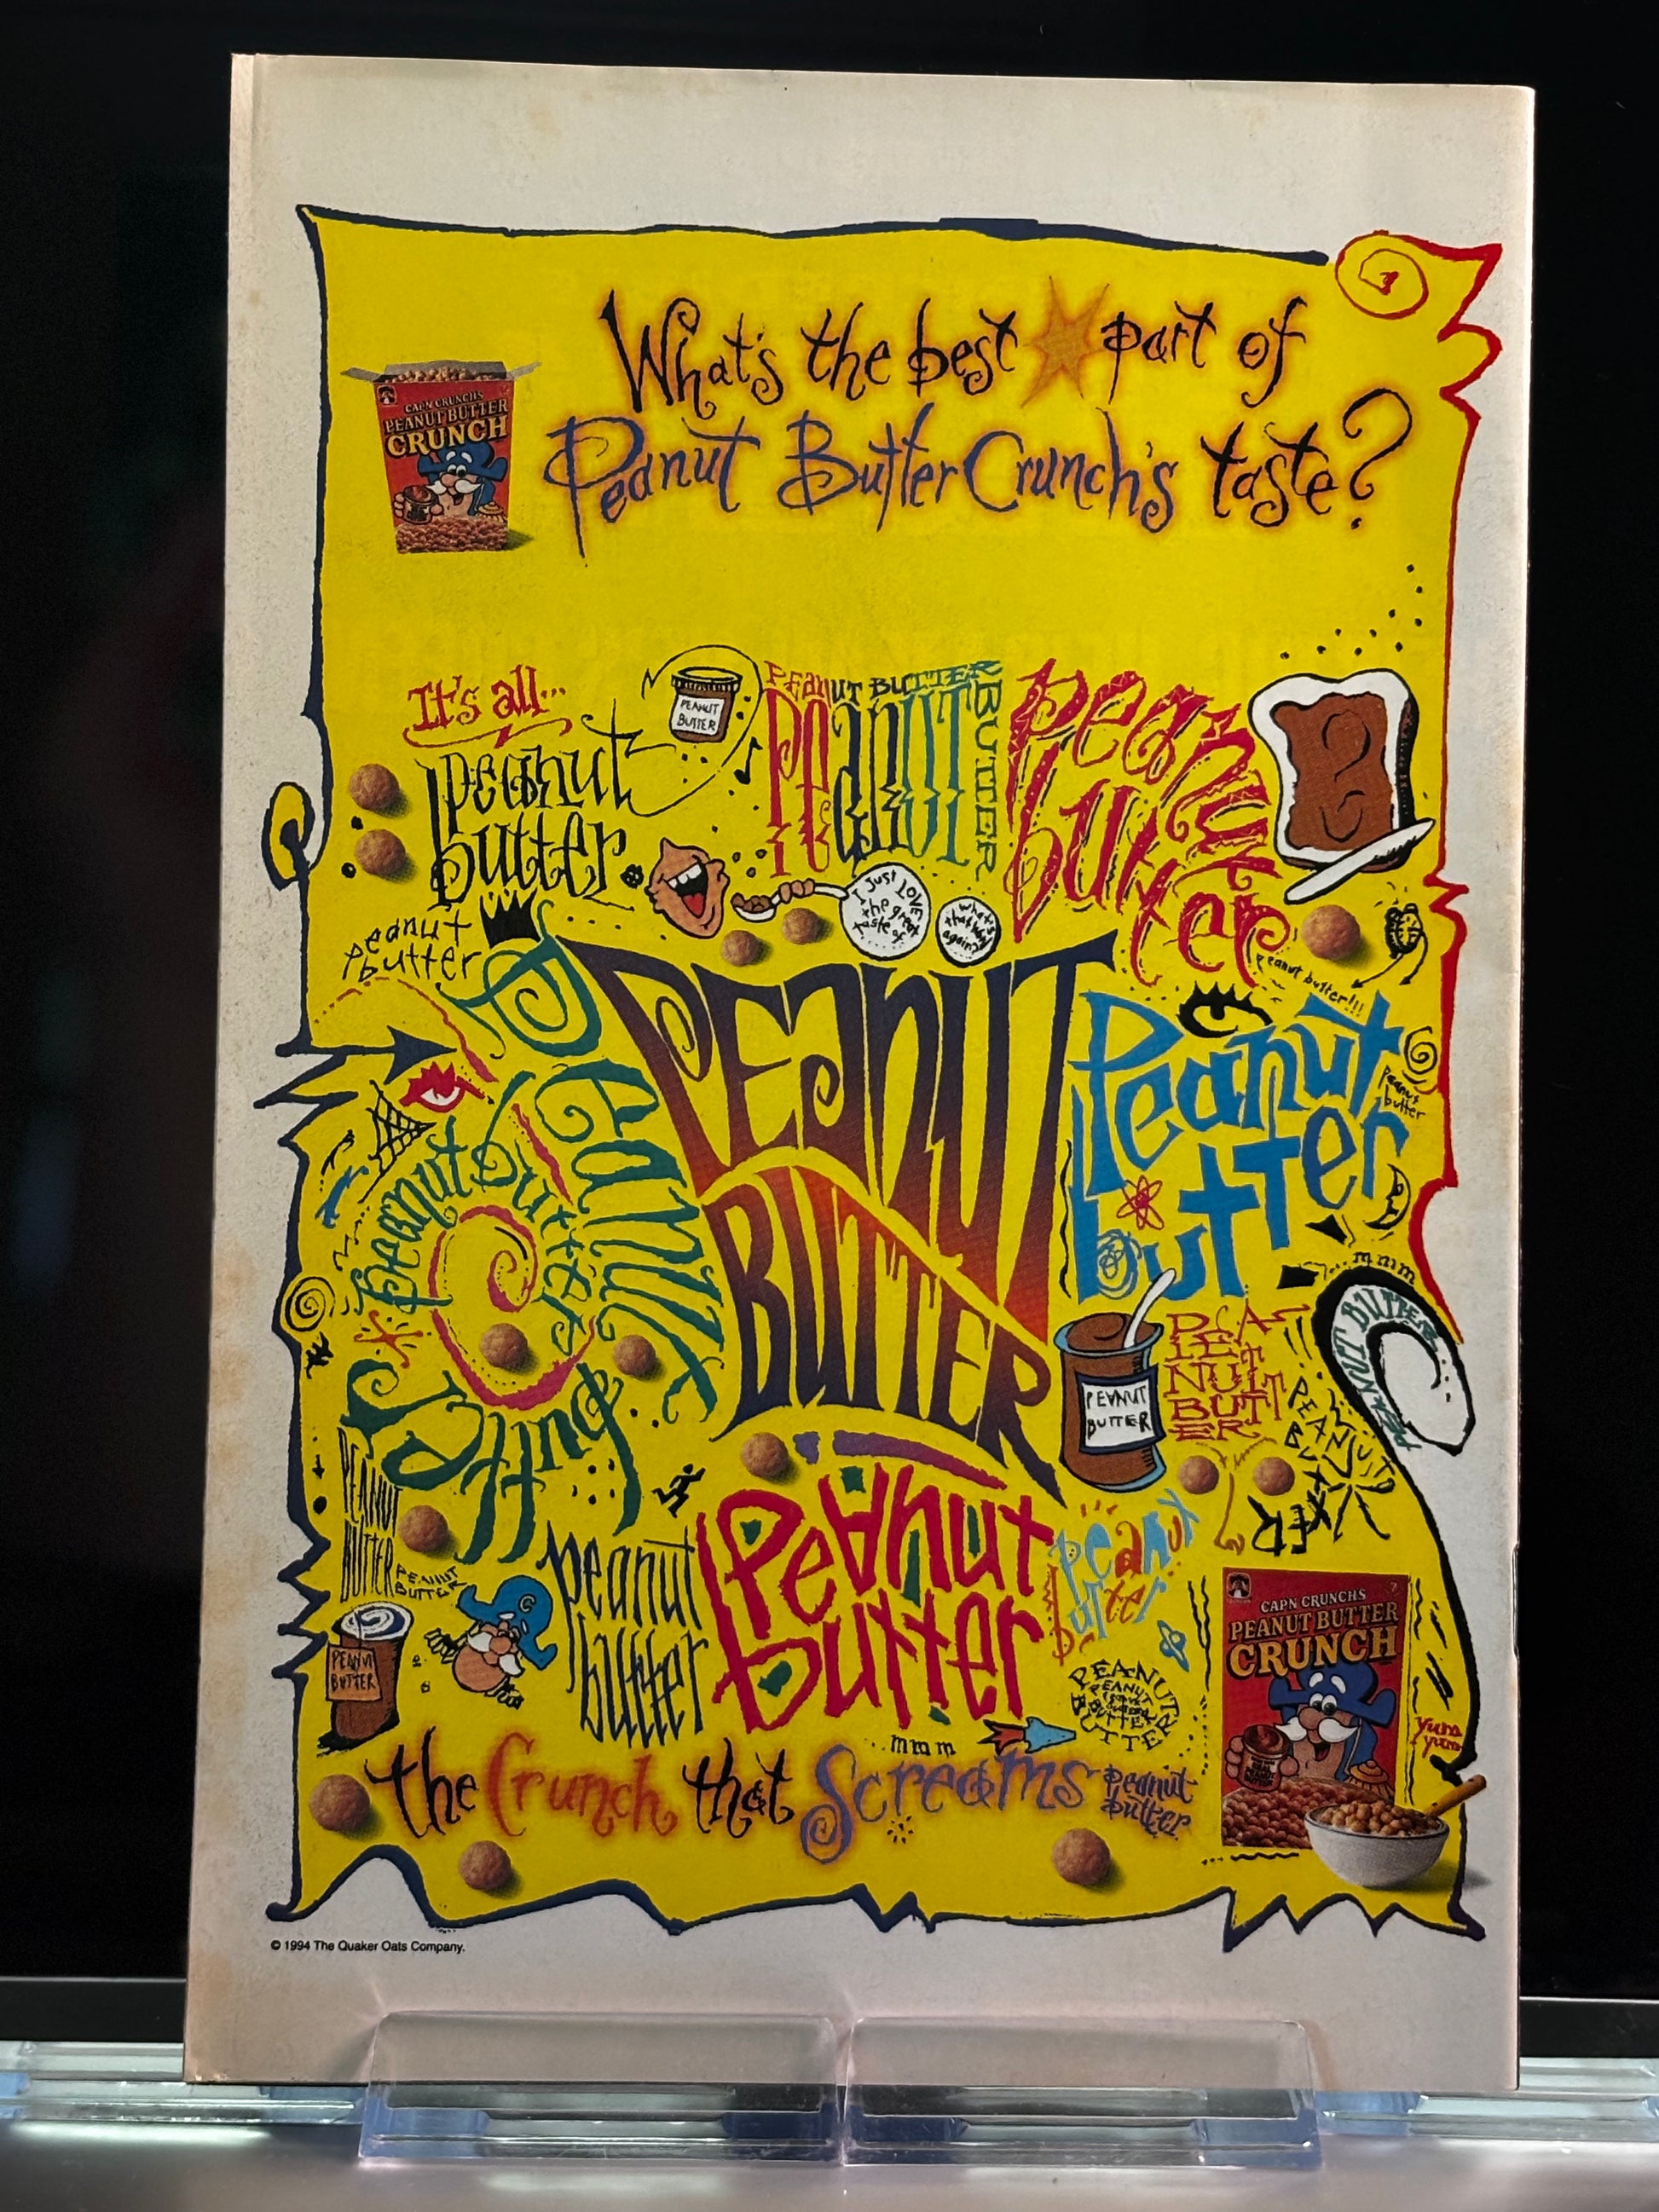 What's the best part of
Peanut Butter Crunch's taste?
CAP'N CRUNCH'S
PEANUT BUTTER
CRUNCH
It's all...
peanut
butter
PEANUT
BUTTER
PEANUT BUTTER
PEANUT
BUTTER
peanut
butter
I just LOVE
the great
taste of
what's
that word
again?
peanut
butter
peanut butter!!!
PEANUT
BUTTER
Peanut
butter
Peanut
butter
Peanut
butter
peanut butter
mmm
PEANUT BUTTER
PEANUT
BUTTER
PEA-
NUT
BUTT
ER
PEANUT
BUTTER
PEANUT
BUTTER
PEANUT
BUTTER
peanut
butter
Peanut
butter
peanut
butter
PEANUT
BUTTER
PEANUT
BUTTER
mmm
CAP'N CRUNCH'S
PEANUT BUTTER
CRUNCH
yum
yum
the Crunch that Screams peanut
butter
© 1994 The Quaker Oats Company.